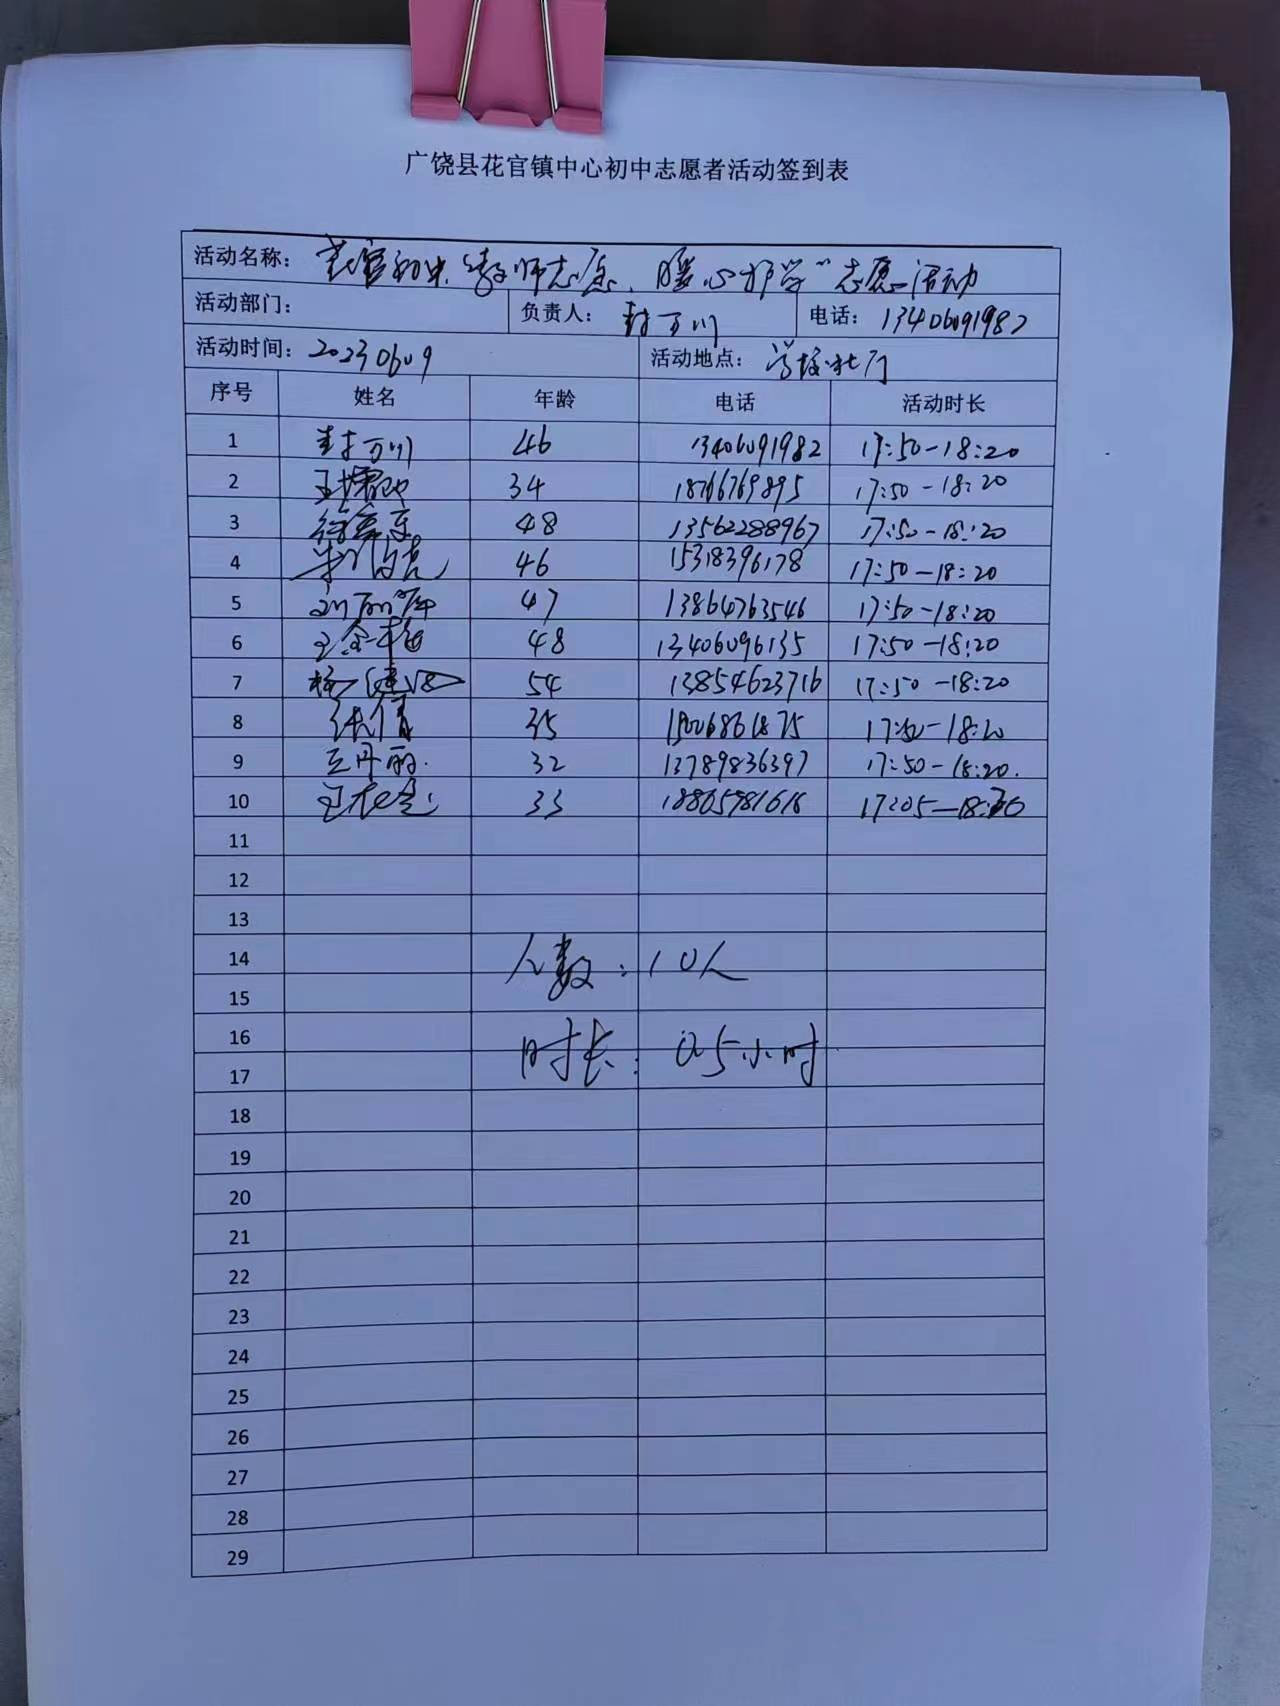 广饶县花官镇中心初中志愿者活动签到表
活动名称：花官初中“教师志愿、暖心护学”志愿活动
活动部门： 负责人：封万川 电话：13406091982
活动时间：20230609 活动地点：学校北门
序号 姓名 年龄 电话 活动时长
1 封万川 46 13406091982 17:50-18:20
2 34 18766769895 17:50-18:20
3 48 13562288967 17:50-18:20
4 46 15318396178 17:50-18:20
5 47 13864763546 17:50-18:20
6 48 13406096135 17:50-18:20
7 54 13854623716 17:50-18:20
8 张倩 35 15006861875 17:50-18:20
9 王丹丽 32 13789836397 17:50-18:20.
10 33 17:05-18:20
11
12
13
14 人数：10人
15
16
17 时长：0.5小时
18
19
20
21
22
23
24
25
26
27
28
29